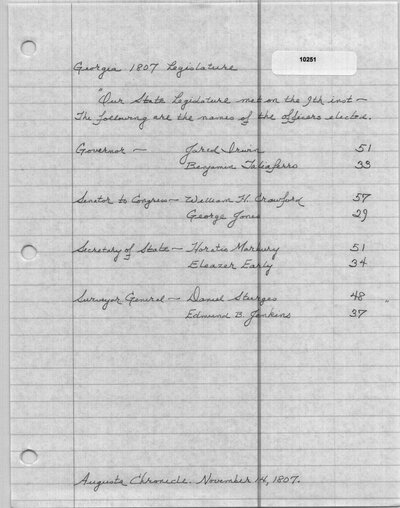 10251
Georgia 1807 Legislature
"Our State Legislature met on the 9th inst —
The following are the names of the officers elected.
Governor — Jared Irwin 51
Benjamin Taliaferro 33
Senator to Congress — William H. Crawford 57
George Jones 29
Secretary of State — Horatio Marbury 51
Eleazer Early 34
Surveyor General — Daniel Sturges 48 "
Edmund B. Jenkins 37
Augusta Chronicle. November 14, 1807.